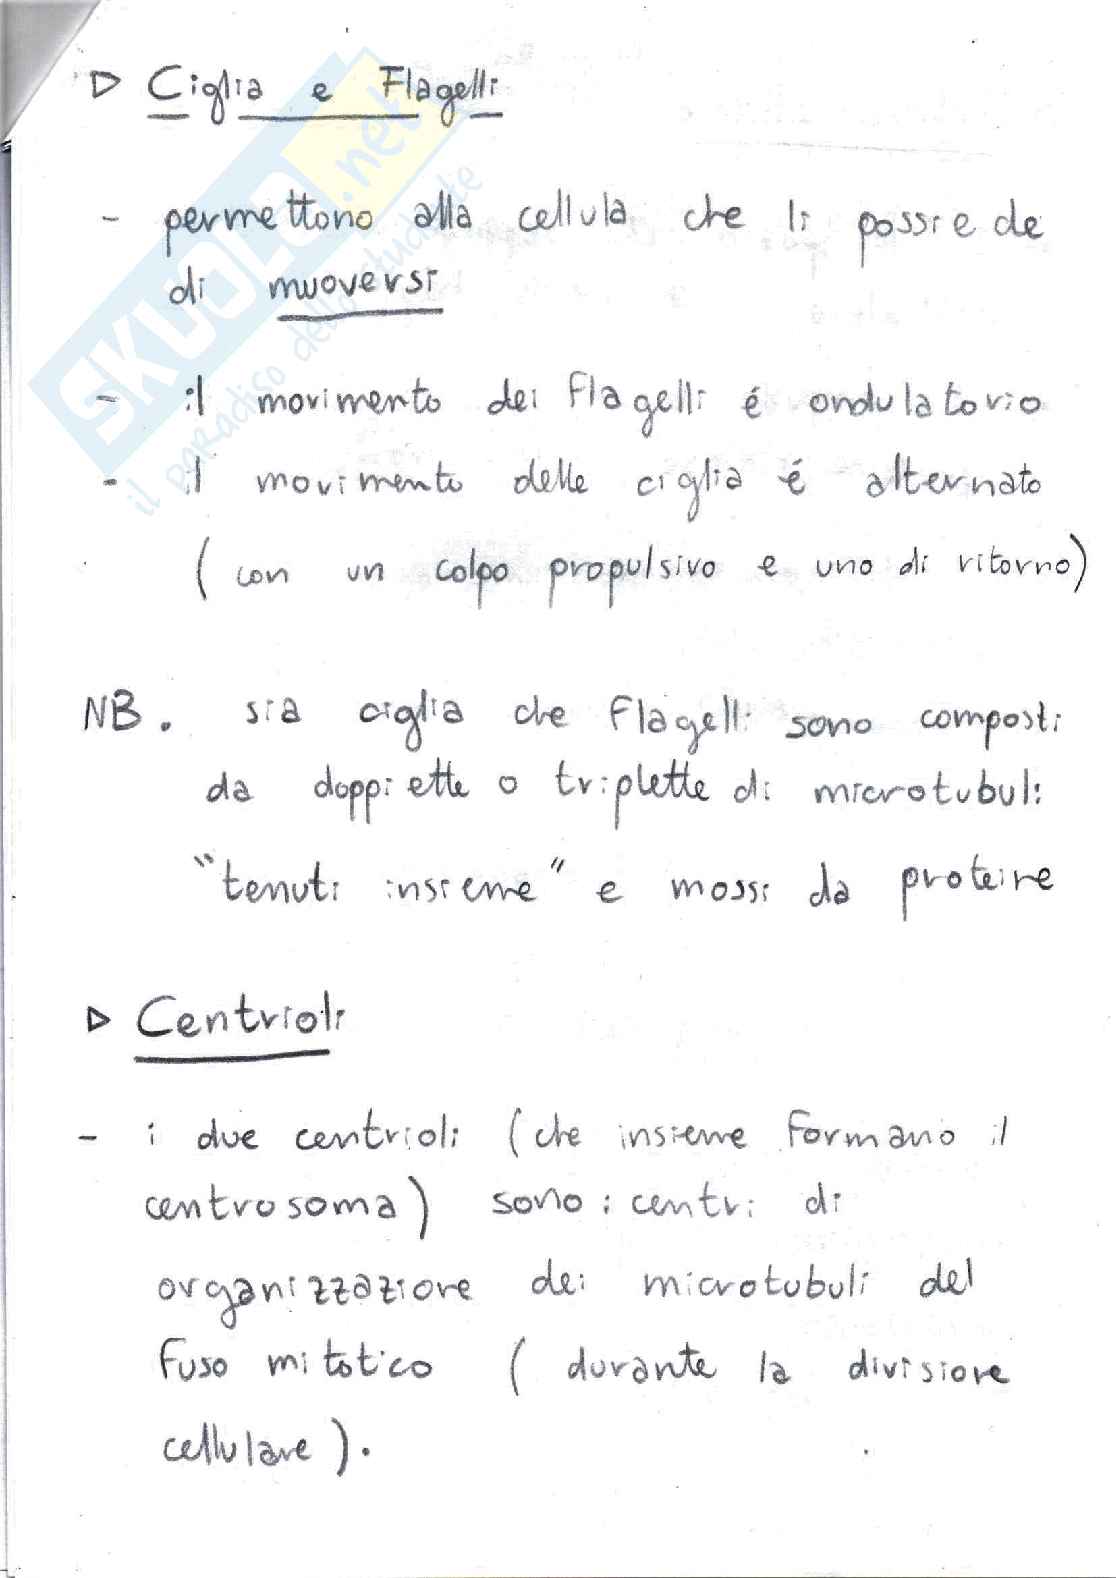 ▷ Ciglia e Flagelli
- permettono alla cellula che li possiede
di muoversi
- il movimento dei flagelli é ondulatorio
- il movimento delle ciglia é alternato
(con un colpo propulsivo e uno di ritorno)
NB. sia ciglia che flagelli sono composti
da doppiette o triplette di microtubuli
"tenuti insieme" e mossi da proteine
▷ Centrioli
- i due centrioli (che insieme formano il
centrosoma) sono i centri di
organizzazione dei microtubuli del
fuso mitotico (durante la divisione
cellulare).
SKUOLA.net
il paradiso dello studente